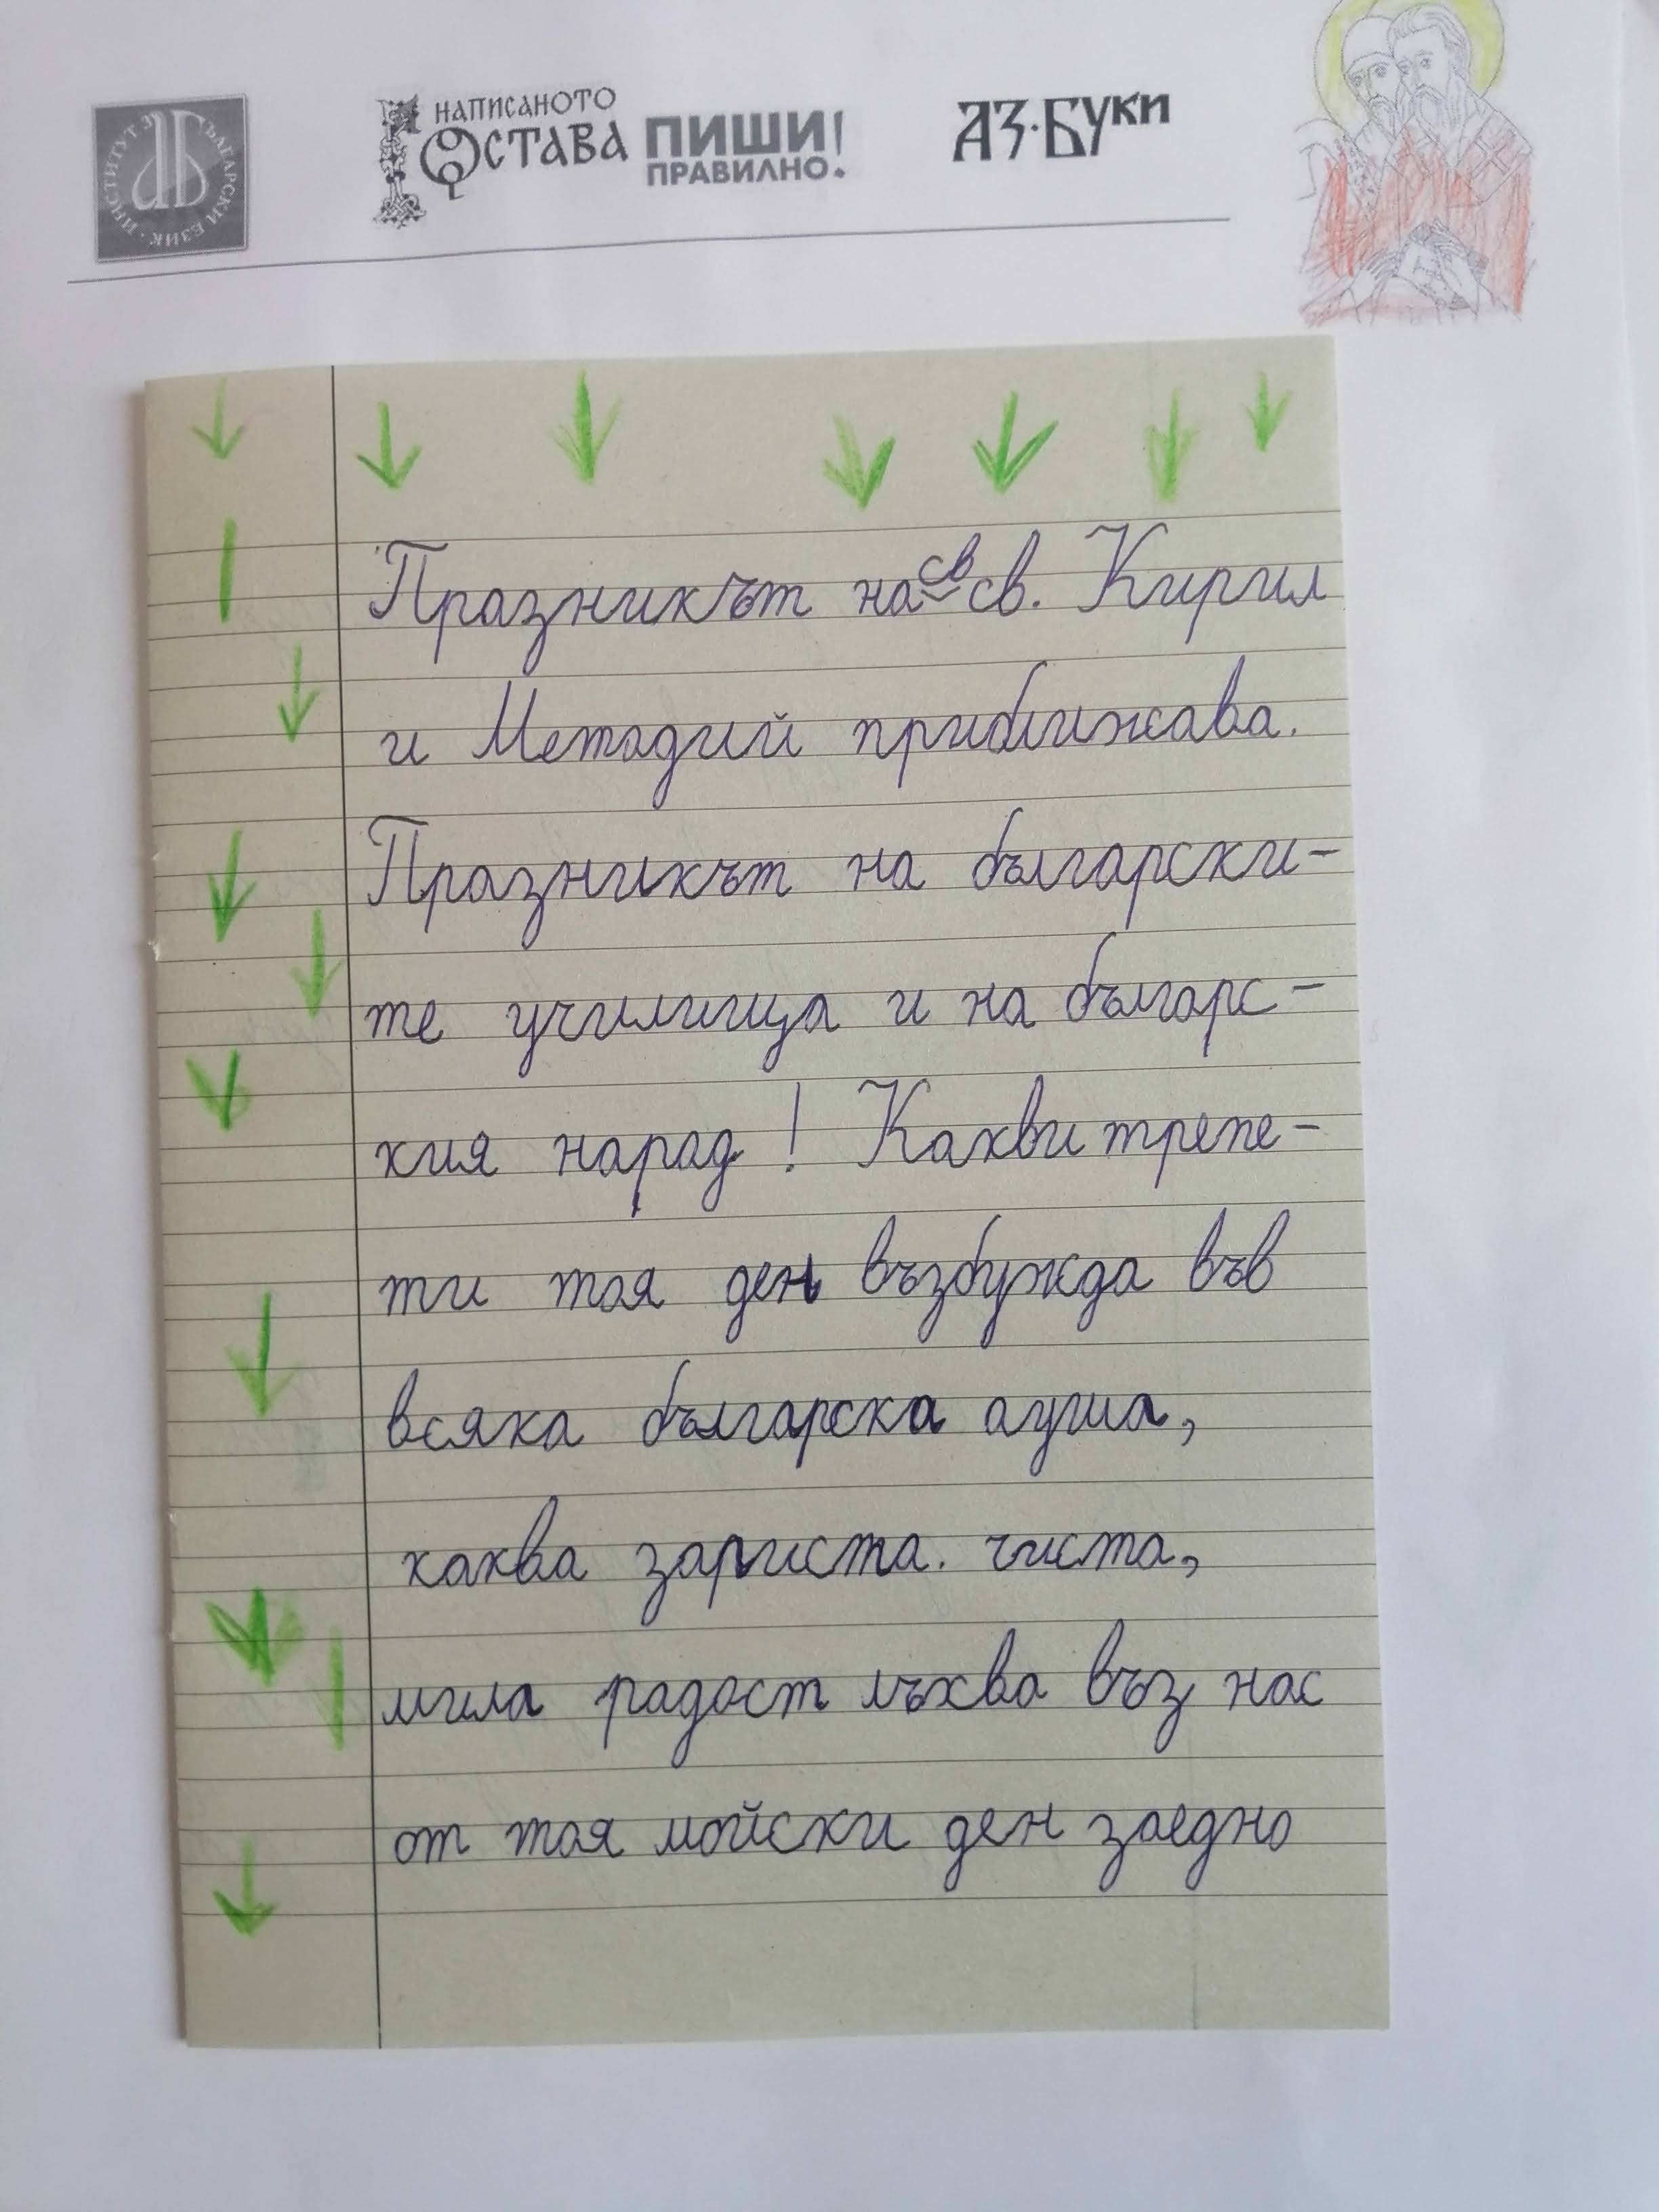 ИНСТИТУТ ЗА БЪЛГАРСКИ ЕЗИК
НАПИСАНОТО
ОСТАВА
ПИШИ!
ПРАВИЛНО.
АЗ·БУКИ
Празникът на св св. Кирил
и Методий приближава.
Празникът на български-
те училища и на българс-
кия народ! Какви трепе-
ти тоя ден възбужда във
всяка българска душа,
каква зариста. чиста,
мила радост лъхва въз нас
от тоя майски ден заедно